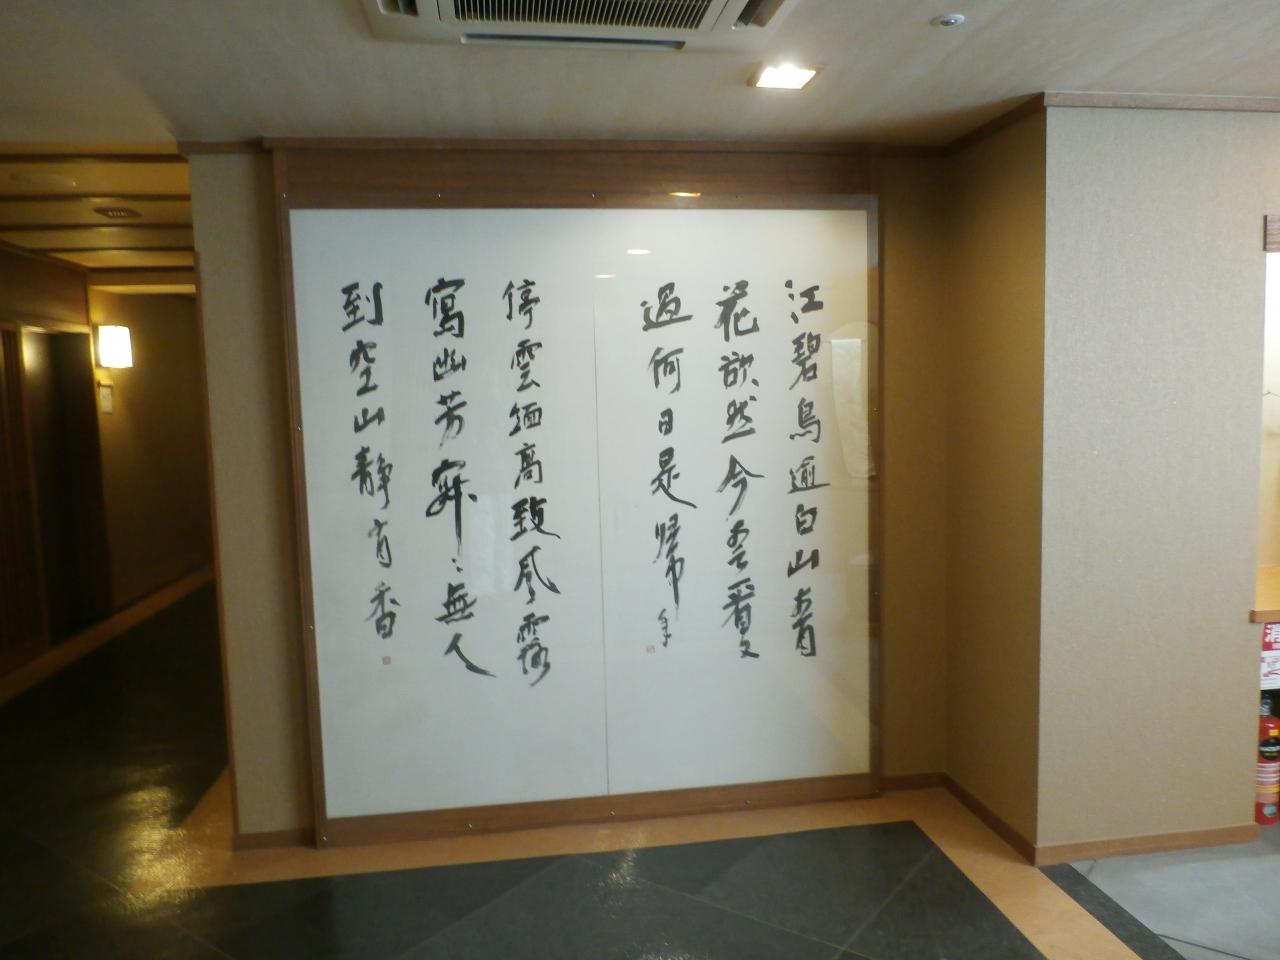 江碧鳥逾白山青
花欲然今春看又
過何日是帰年
停雲緬高致風露
寫幽芳寂〻無人
到空山静有香